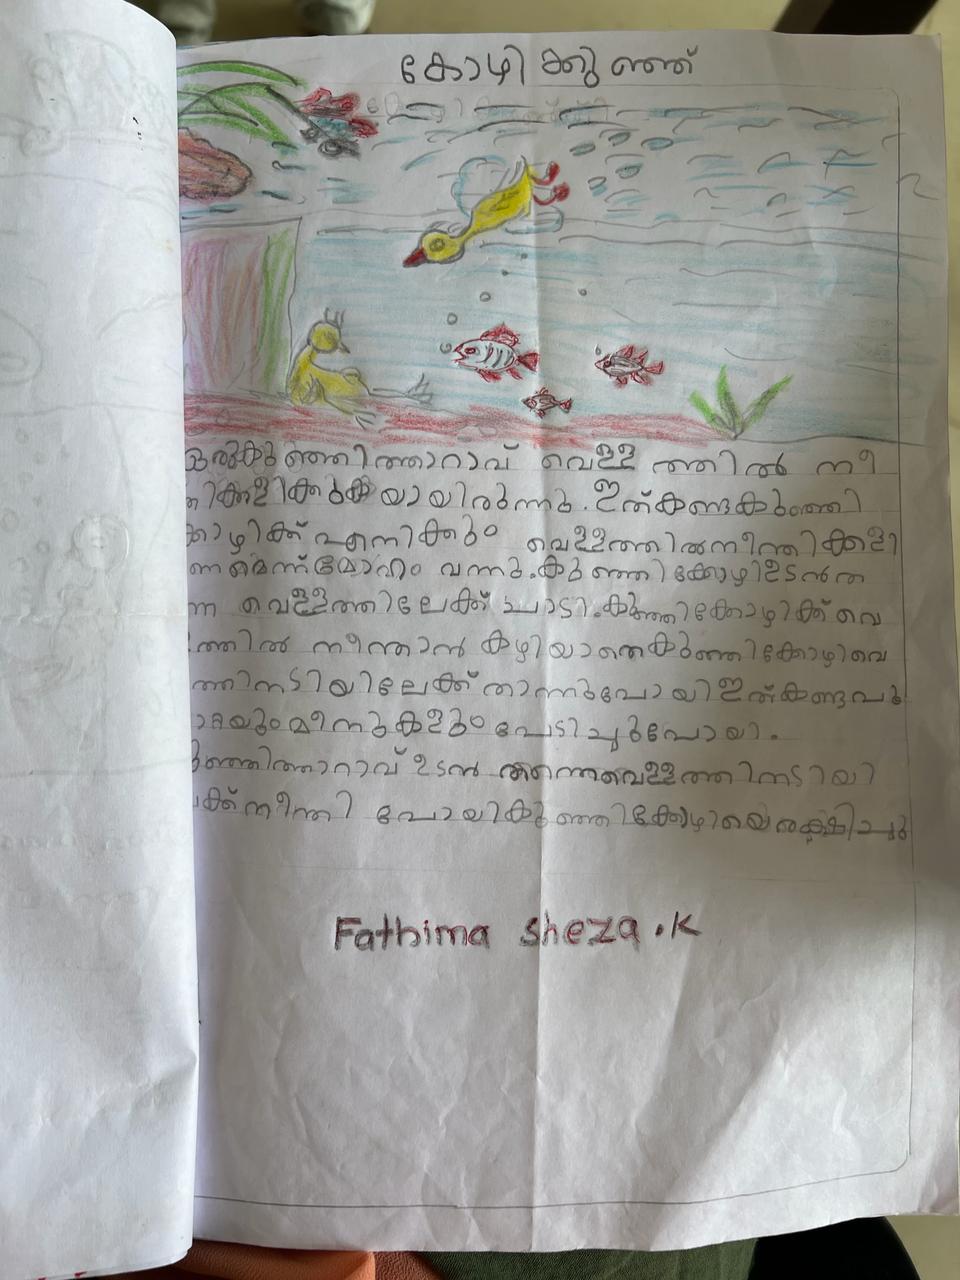 കോഴിക്കുഞ്ഞ്
ഒരുകുഞ്ഞിത്താറാവ് വെള്ളത്തിൽ നീ
ന്തികളിക്കുകയായിരുന്നു. ഇത്കണ്ടകുഞ്ഞി
ക്കോഴിക്ക് എനിക്കും വെള്ളത്തിൽനീന്തിക്കളി
ണമെന്ന്മോഹം വന്നു.കുഞ്ഞിക്കോഴിഉടൻത
ന്നെ വെള്ളത്തിലേക്ക് ചാടി.കുഞ്ഞികോഴിക്ക് വെ
ത്തിൽ നീന്താൻ കഴിയാതെകുഞ്ഞികോഴിവെ
ത്തിനടിയിലേക്ക് താന്നുപോയിഇത്കണ്ടപൂ
മീനുകളും പേടിച്ചുപോയി.
കുഞ്ഞിത്താറാവ് ഉടൻ തന്നെവെള്ളത്തിനടിയി
ലേക്ക് നീന്തി പോയികുഞ്ഞിക്കോഴിയെരക്ഷിച്ചു
Fathima Sheza .K